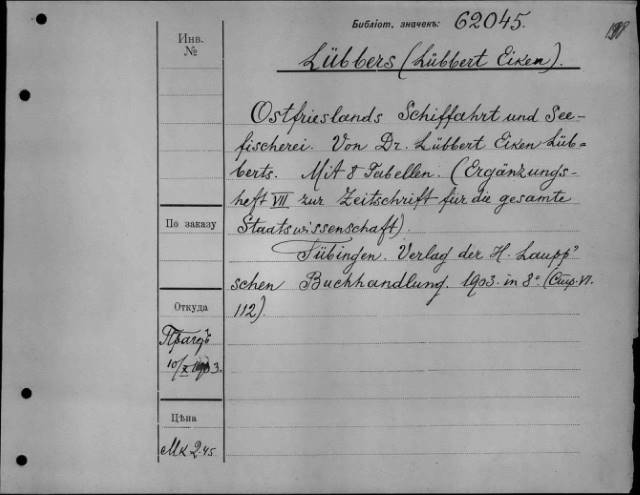 Библіот. значекъ: 62045.
Инв.
№
Lübbers (Lübbert Eiken).
Ostfrieslands Schiffahrt und See-
fischerei. Von Dr. Lübbert Eiken Lüb-
berts. Mit 8 Tabellen. (Ergänzungs-
heft VII zur Zeitschrift für die gesamte
Staatswissenschaft).
Tübingen. Verlag der H. Laupp'
schen Buchhandlung. 1903. in 8° (Стр. VI.
112)
По заказу
Откуда
10/X 1903.
Цѣна
Мк 2.45